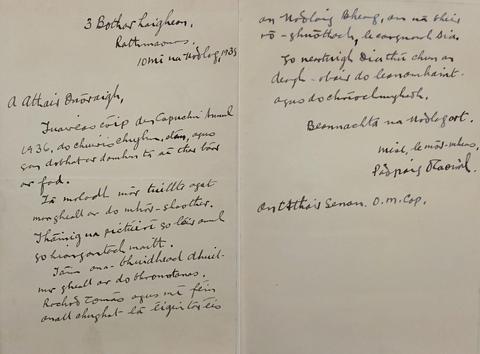 3 Bóthar Laighean,
Rathmaonas,
10mí na Nodlog, 1935
A Athair Dhóraigh,
Fuaireas cóip den Capuchin Annual
1936, do chuiris chugham, agus
gan dobhat ar domhan tá ar thár barr
ar fad.
Tá moladh mór tuillte agat
mar gheall ar do mhór-shaothar.
Tháinig na pictiúirí go léir amach
go hiongantach maith.
Táim ana-bhuidheach dhuit
mar gheall ar do bhronntanas.
Rachaidh Tomás agus mé féin
anall chughat lá éigin tar éis
an Nodlaig Bheag, an nâ bheir
ró-ghnóthach, le congnamh Dia.
Go neartuigh Dia thú chun an
deagh-obair do leanamhaint
agus do chríochnughadh.
Beannachtaí na Nodlag ort.
Mise, le mór-mheas,
Pádraig
An tAthair Senan. O.M.Cap.